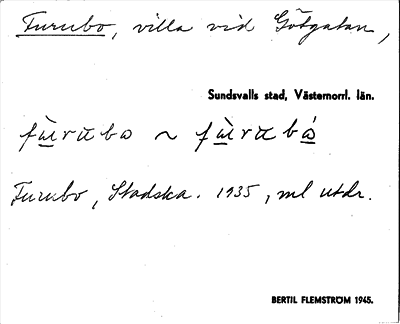 Furubo, villa vid Götgatan,
Sundsvalls stad, Västernorrl. län.
fùrubo ~ fùrubó
Furubo, Stadska. 1935, ml utdr.
BERTIL FLEMSTRÖM 1945.